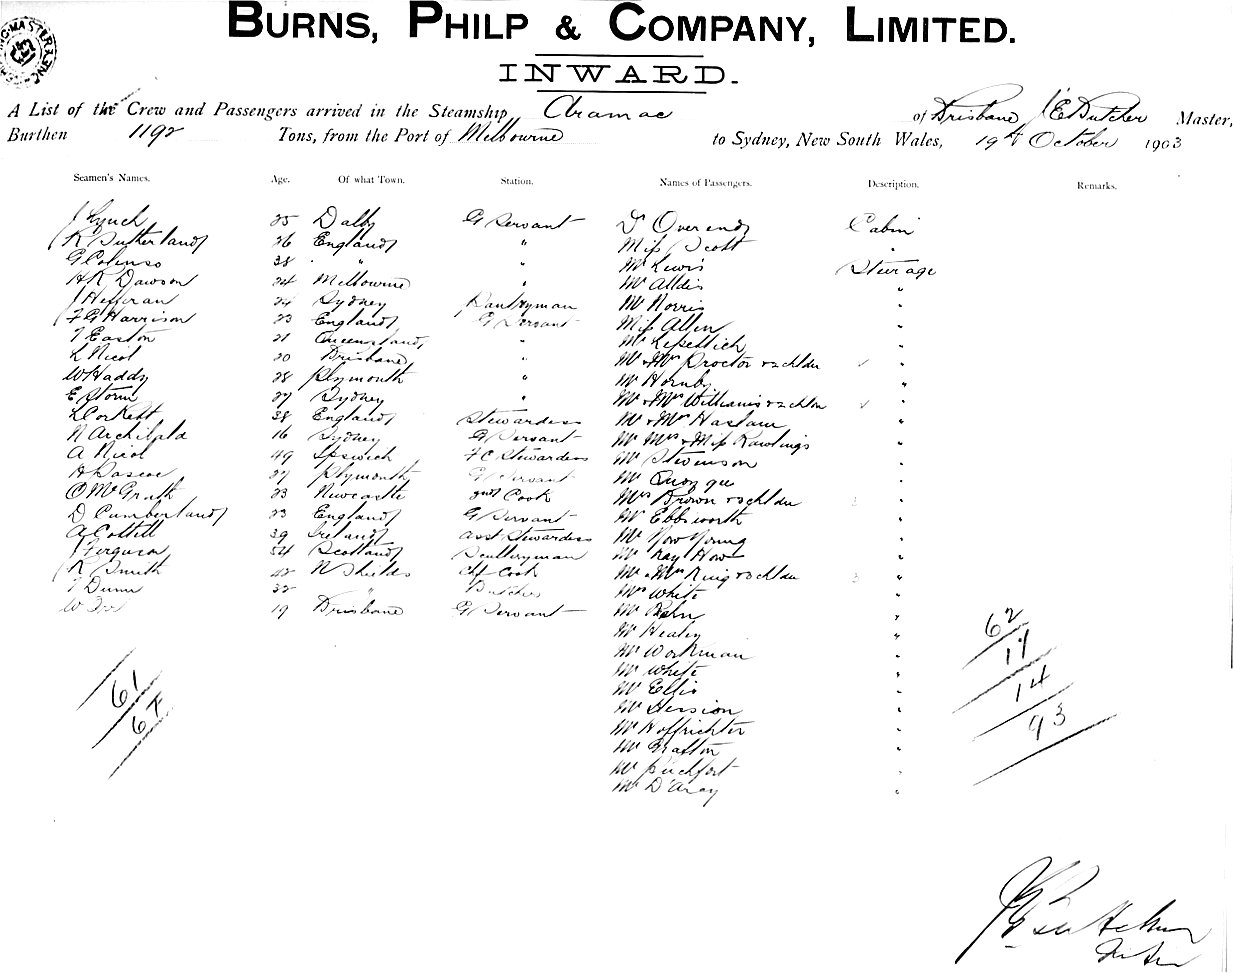 BURNS, PHILP & COMPANY, LIMITED.
INWARD.
A List of the Crew and Passengers arrived in the Steamship Aramac of Brisbane J E Butcher Master,
Burthen 1192 Tons, from the Port of Melbourne to Sydney, New South Wales, 19th October 1903
Seamen's Names. Age. Of what Town. Station. Names of Passengers. Description. Remarks.
J Lynch 25 Dalby G Servant Dr Overend Cabin
R Sutherland 26 England " Miss Scott "
G Colenso 38 " " Mr Lewis Steerage
H R Dawson 24 Melbourne " Mr Alldis "
J Heffernan 24 Sydney Pantryman Mr Norris "
F G Harrison 23 England G Servant Miss Allen "
T Easton 21 Queensland " Mr "
L Nicol 20 Brisbane " Mr & Mrs Proctor & 2 chldn "
W Haddy 28 Plymouth " Mr Hornby "
E Storm 27 Sydney " Mr & Mrs Williams & 2 chldn "
L Corkett 38 England Stewardess Mr & Mrs Haslam "
N Archibald 16 Sydney G Servant Mr Mrs & Miss Rawlings "
A Nicol 49 Ipswich F C Stewardess Mr Stevenson "
H Pascoe 27 Plymouth G Servant Mr Quong "
O McGrath 23 Newcastle 2nd Cook Mrs Brown & 3 chldn "
D Cumberland 23 England G Servant Mr Ebbsworth "
A Cottell 39 Ireland asst Stewardess Mr Young "
J Ferguson 54 Scotland Sculleryman Mr How "
R Smith 42 N Shields Chf Cook Mr & Mrs King & chldn "
T Dunn 32 " Butcher Mrs White "
W 19 Brisbane G Servant Mr "
Mr Healey "
Mr Workman "
Mr White "
Mr Ellis "
Mr Hession "
Mr Hoffrichter "
Mr Grafton "
Mr "
Mr D'Arcy "
61
67
62
17
14
93
J E Butcher
Master